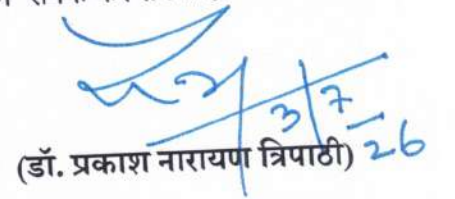 3/7/26
(डॉ. प्रकाश नारायण त्रिपाठी)